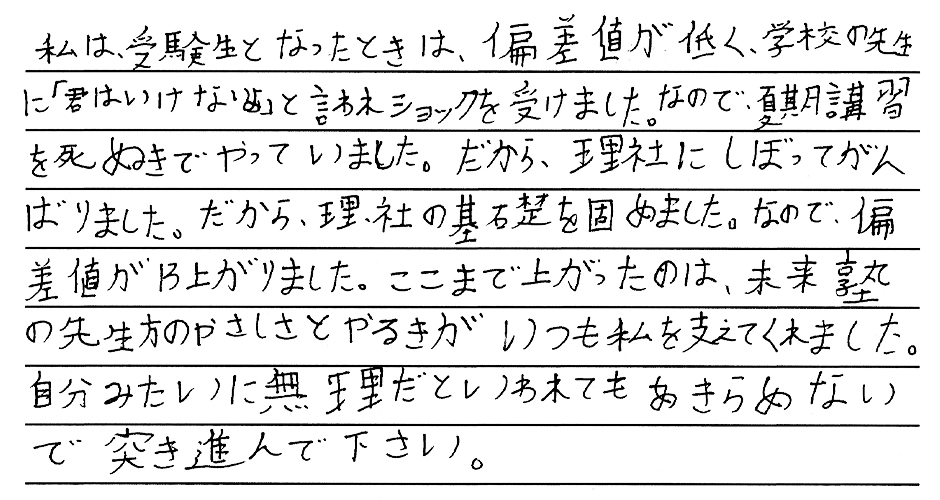 私は、受験生となったときは、偏差値が低く、学校の先生
に「君はいけないぬ」と言われショックを受けました。なので、夏期講習
を死ぬきでやっていました。だから、理社にしぼってがん
ばりました。だから、理、社の基礎を固めました。なので、偏
差値が13上がりました。ここまで上がったのは、未来塾
の先生方のやさしさとやるきがいつも私を支えてくれました。
自分みたいに無理だといわれてもあきらめない
で突き進んで下さい。